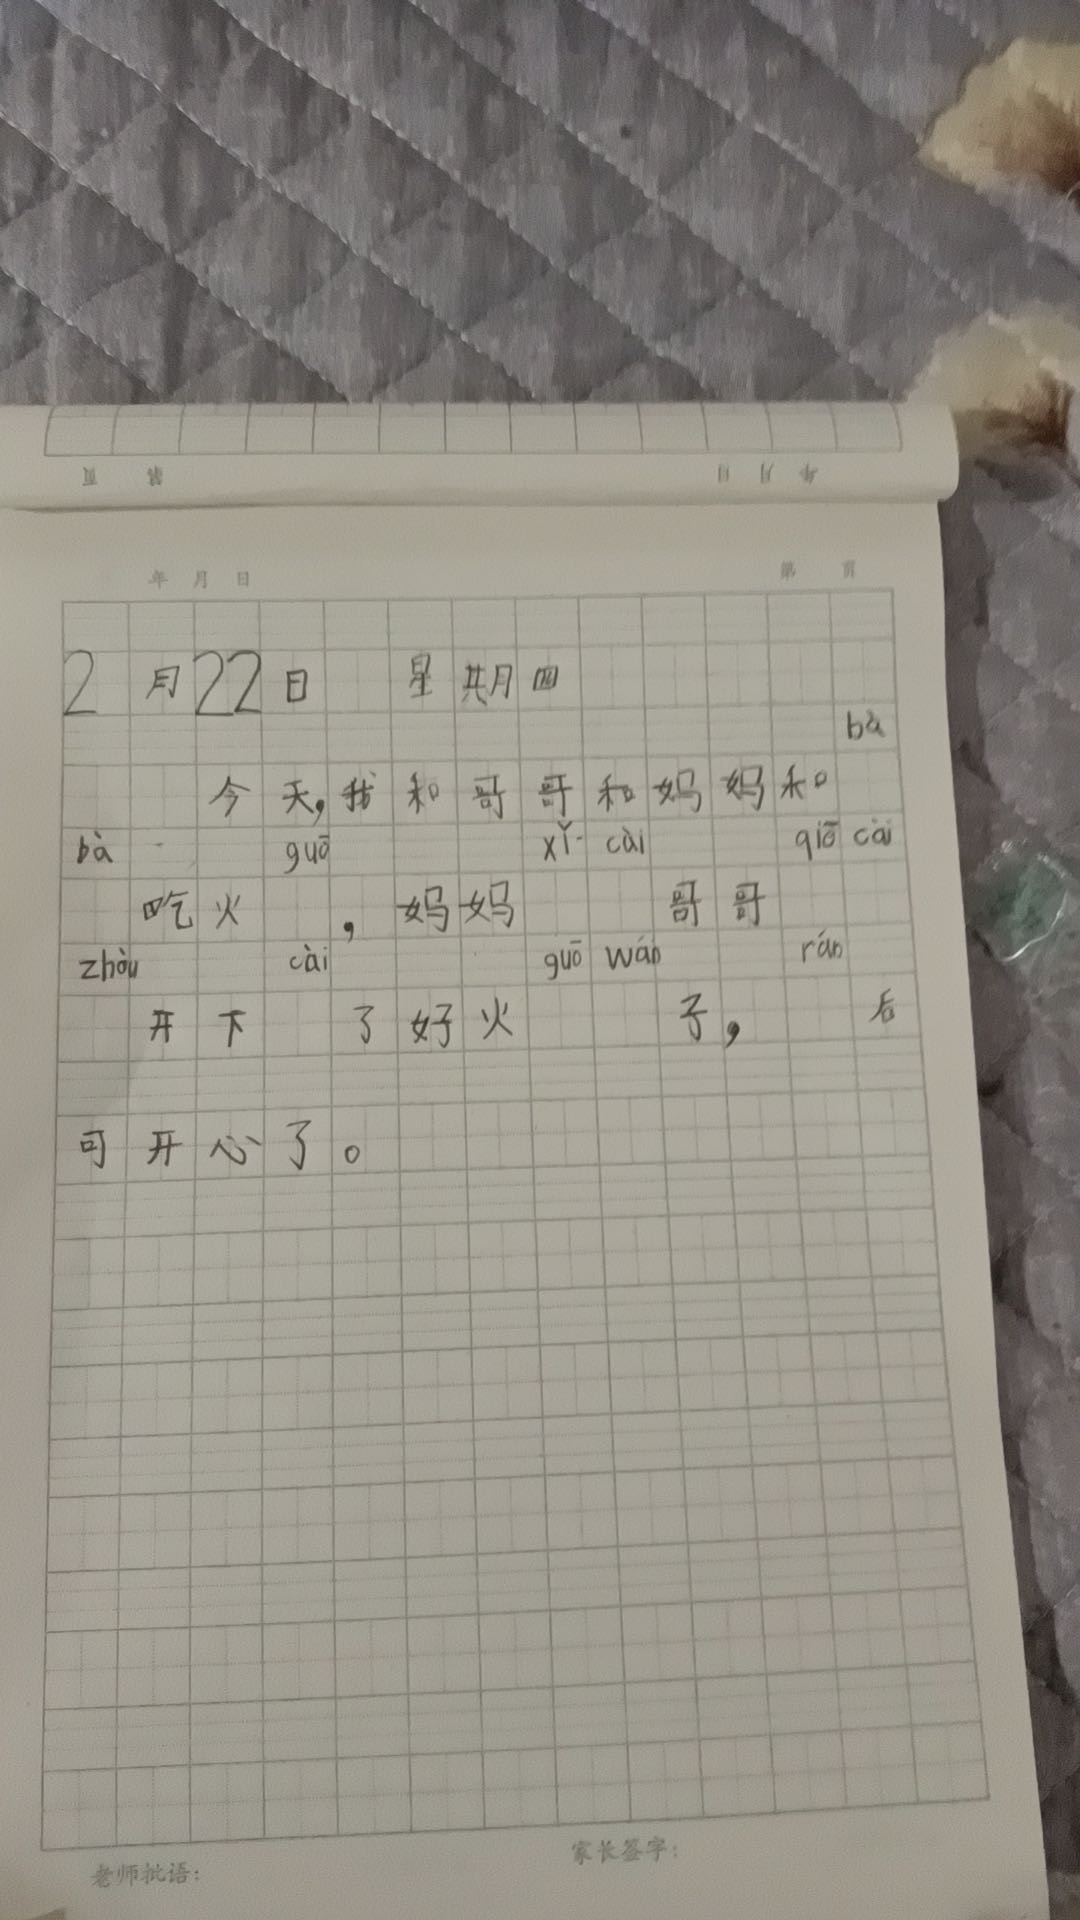 页 第 日 月 年
年 月 日 第 页
2月22日 星期四
bà
今天,我和哥哥和妈妈和
bà guō xǐ cài qiō cài
吃火 ,妈妈 哥哥
zhòu cài guō wán rán
开下 了好火 子, 后
可开心了。
老师批语: 家长签字: